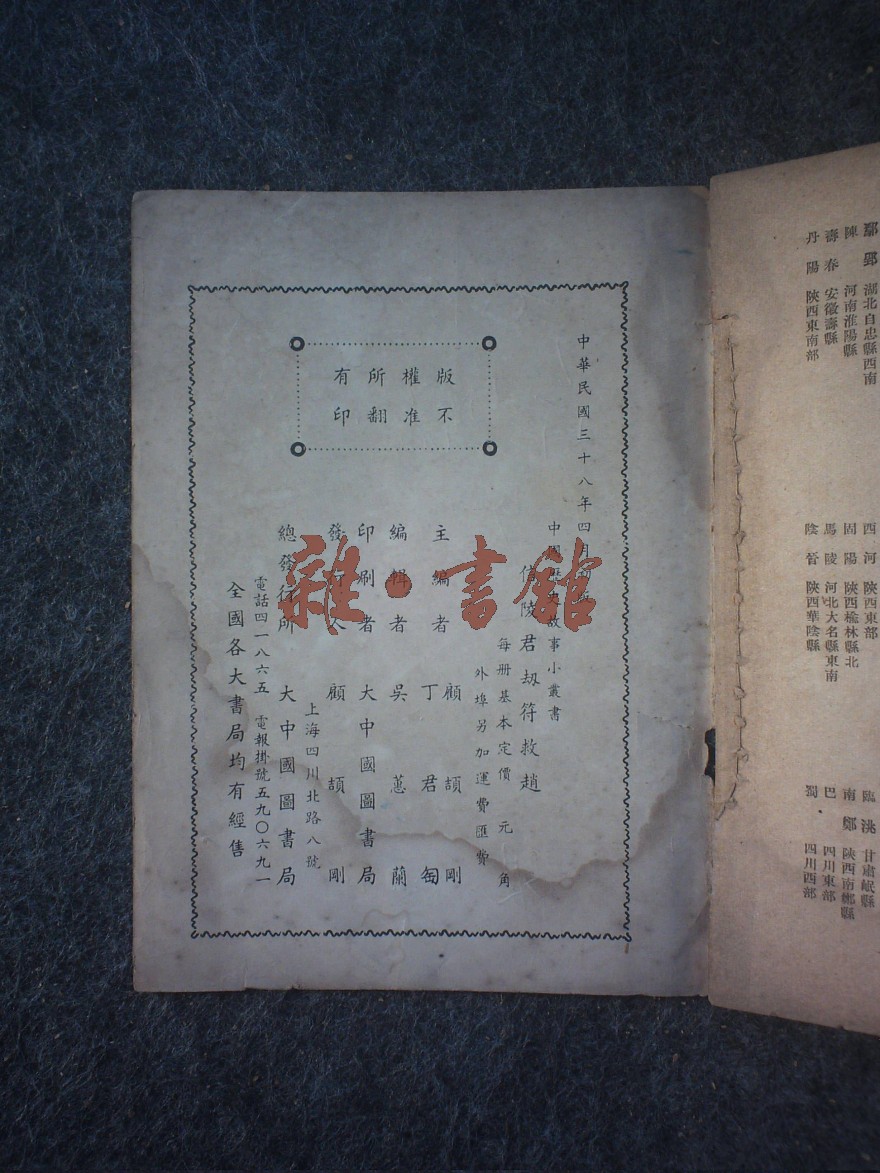 鄢郢 湖北自忠縣西南
陳 河南淮陽縣
壽春 安徽壽縣
丹陽 陝西東南部
西河 陝西東部
固陽 陝西榆林縣北
馬陵 河北大名縣東南
陰晉 陝西華陰縣
臨洮 甘肅岷縣
南鄭 陝西南鄭縣
巴 四川東部
蜀 四川西部
中華民國三十八年四月
版權所有
不准翻印
中國歷史故事小叢書
信陵君刼符救趙
每册基本定價 元 角
外埠另加運費匯費
主編者 顧頡剛
丁君匋
編輯者 吳蕙蘭
印刷者 大中國圖書局
發行人 顧頡剛
上海四川北路八號
總發行所 大中國圖書局
電話四一八六五 電報掛號五九〇六九一
全國各大書局均有經售
雜·書館